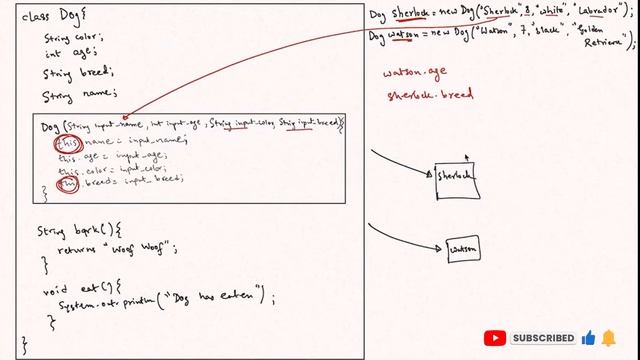 class Dog{
String color;
int age;
String breed;
String name;
Dog (String input_name, int input_age, String input_color, String input_breed){
this.name = input_name;
this.age = input_age;
this.color = input_color;
this.breed = input_breed;
}
String bark(){
returns "Woof Woof";
}
void eat(){
System.out.println("Dog has eaten");
}
}
Dog sherlock = new Dog("Sherlock", 8, "white", "Labrador");
Dog watson = new Dog("Watson", 7, "black", "Golden
Retriever");
watson.age
sherlock.breed
Sherlock
Watson
SUBSCRIBED